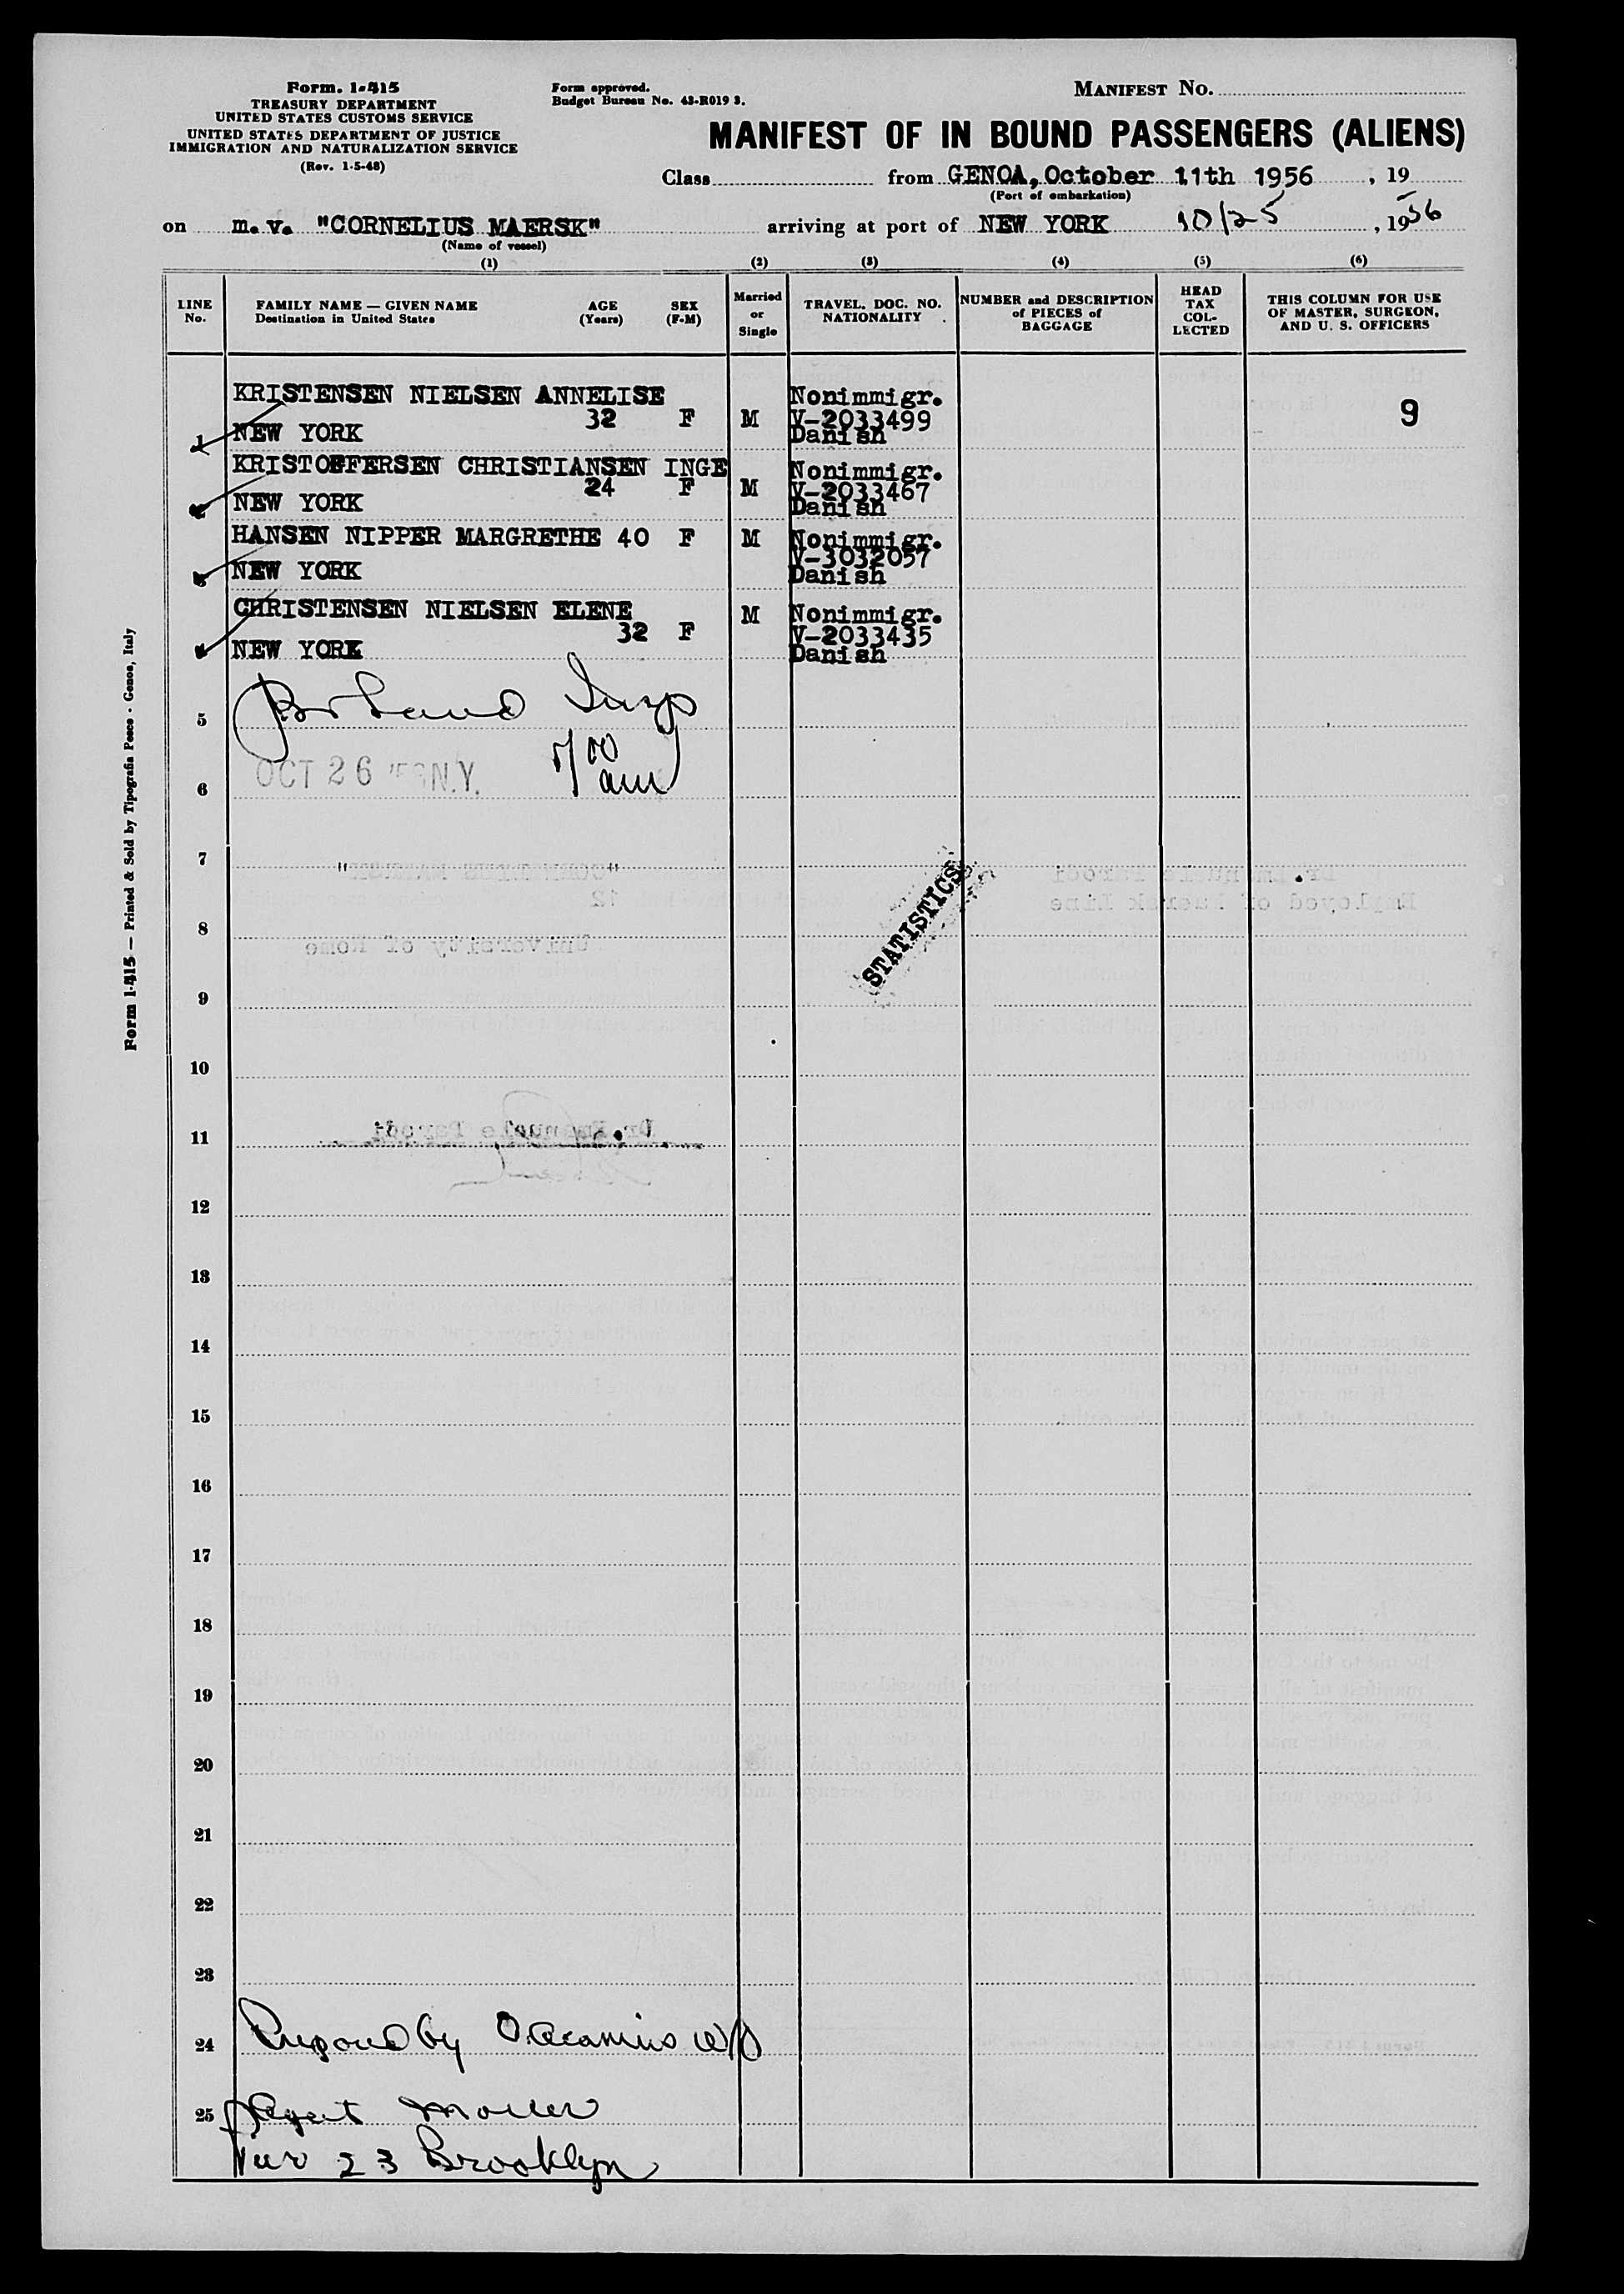 Form. 1-415
TREASURY DEPARTMENT
UNITED STATES CUSTOMS SERVICE
UNITED STATES DEPARTMENT OF JUSTICE
IMMIGRATION AND NATURALIZATION SERVICE
(Rev. 1-5-48)
Form approved.
Budget Bureau No. 43-R019 3.
MANIFEST NO.
MANIFEST OF IN BOUND PASSENGERS (ALIENS)
Class from GENOA, October 11th 1956 , 19
(Port of embarkation)
on m.v. "CORNELIUS MAERSK" arriving at port of NEW YORK 10/25 , 1956
(Name of vessel)
(1) (2) (3) (4) (5) (6)
LINE No.
FAMILY NAME — GIVEN NAME
Destination in United States
AGE (Years)
SEX (F-M)
Married or Single
TRAVEL. DOC. NO. NATIONALITY
NUMBER and DESCRIPTION of PIECES of BAGGAGE
HEAD TAX COL- LECTED
THIS COLUMN FOR USE OF MASTER, SURGEON, AND U. S. OFFICERS
KRISTENSEN NIELSEN ANNELISE Nonimmigr.
32 F M V-2033499 9
1 NEW YORK Danish
KRISTOFFERSEN CHRISTIANSEN INGE Nonimmigr.
24 F M V-2033467
NEW YORK Danish
HANSEN NIPPER MARGRETHE 40 F M Nonimmigr.
V-3032057
NEW YORK Danish
CHRISTENSEN NIELSEN ELENE M Nonimmigr.
32 F V-2033435
NEW YORK Danish
5
OCT 26 N.Y.
am
6
7
STATISTICS
8
9
10
11
12
13
14
15
16
17
18
19
20
21
22
23
24 by
25 Agent Moller
Pier 23 Brooklyn
Form 1-415 — Printed & Sold by Tipografia Pesce - Genoa, Italy